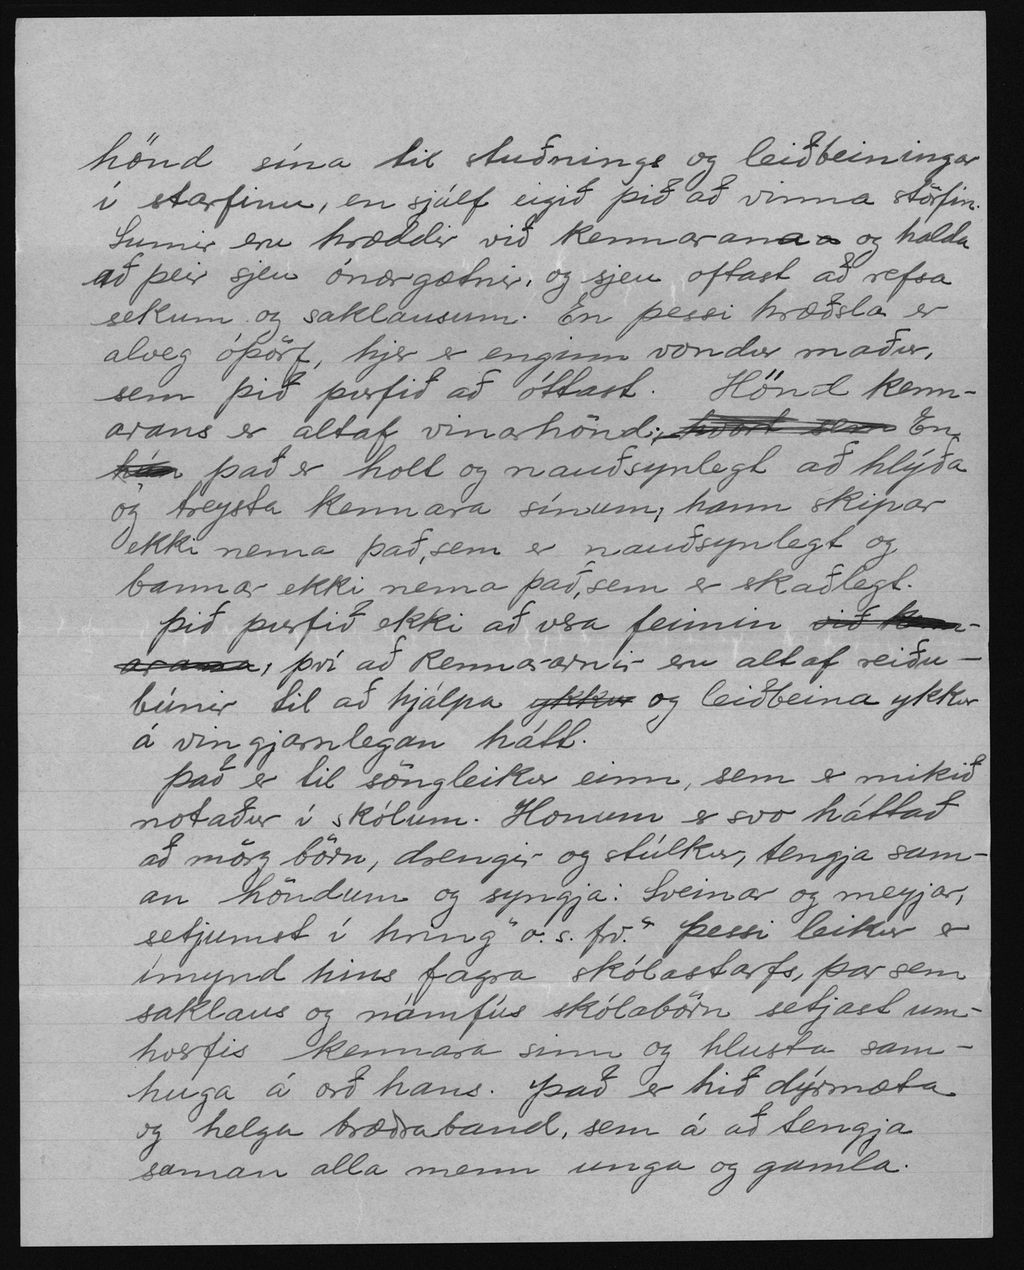 hönd sína til stuðnings og leiðbeiningar
í starfinu, en sjálf eigið þið að vinna störfin.
Sumir eru hræddir við kennarana og halda
að þeir sjeu ónærgætnir, og sjeu oftast að refsa
sekum og saklausum. En þessi hræðsla er
alveg óþörf, hjer er enginn vondur maður,
sem þið þurfið að óttast. Hönd kenn-
arans er altaf vinarhönd; hvort sem En
hún það er holt og nauðsynlegt að hlýða
og treysta kennara sínum; hann skipar
ekki nema það, sem er nauðsynlegt og
bannar ekki nema það, sem er skaðlegt.
Þið þurfið ekki að vera feimin við kenn-
arana, því að kennararnir eru altaf reiðu-
búnir til að hjálpa ykkur og leiðbeina ykkur
á vingjarnlegan hátt.
Það er til söngleikur einn, sem er mikið
notaður í skólum. Honum er svo háttað
að mörg börn, drengir og stúlkur, tengja sam-
an höndum og syngja: Sveinar og meyjar,
setjumst í hring" o. s. frv." Þessi leikur er
ímynd hins fagra skólastarfs, þar sem
saklaus og námfús skólabörn setjast um-
hverfis kennara sinn og hlusta sam-
huga á orð hans. Það er hið dýrmæta
og helga bræðraband, sem á að tengja
saman alla menn unga og gamla.